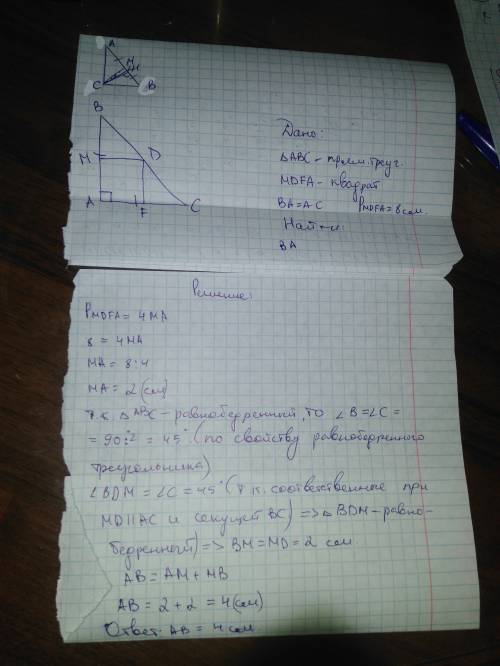 A
M
H
C
B
B
M
D
A
F
C
Дано:
ΔABC - прям. треуг.
MDFA - квадрат
BA = AC PMDFA = 8 см.
Найти:
BA
Решение:
PMDFA = 4MA
8 = 4MA
MA = 8:4
MA = 2 (см)
т.к. ΔABC - равнобедренный, то ∠B = ∠C =
= 90:2 = 45° (по свойству равнобедренного
треугольника)
∠BDM = ∠C = 45° (т.к. соответственные при
MD||AC и секущей BC) => Δ BDM - равно-
бедренный) => BM = MD = 2 см
AB = AM + MB
AB = 2 + 2 = 4 (см)
Ответ: AB = 4 см